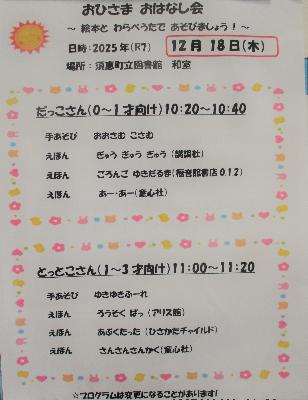 おひさま おはなし会
～ 絵本と わらべうたで あそびましょう！～
日時：2025年（R7） 12月 18日（木）
場所：須恵町立図書館 和室
だっこさん（0～1才向け）10:20～10:40
手あそび おおさむ こさむ
えほん ぎゅう ぎゅう ぎゅう（講談社）
えほん ごろんご ゆきだるま（福音館書店 0.1.2）
えほん あー・あー（童心社）
とっとこさん（1～3才向け）11:00～11:20
手あそび ゆきゆきふーれ
えほん ろうそく ぱっ（アリス館）
えほん あぶくたった（ひさかたチャイルド）
えほん さんさんさんかく（童心社）
☆プログラムは変更になることがあります！